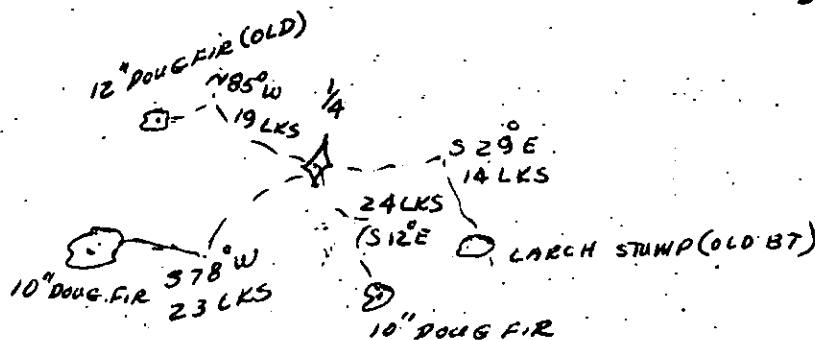 12" DOUG FIR (OLD)
N85°W
19 LKS
1/4
S 29° E
14 LKS
24 LKS
(S 12° E
LARCH STUMP (OLD BT)
10" DOUG. FIR
S 78° W
23 LKS
10" DOUG FIR